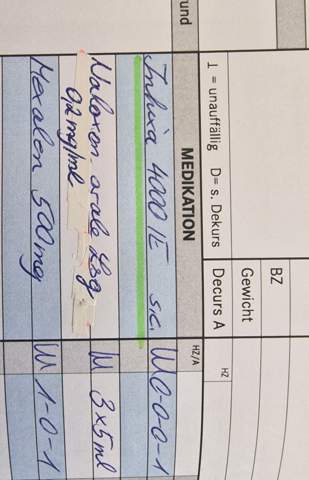 und
⊥ = unauffällig D= s. Dekurs
BZ
Gewicht
Decurs A HZ
MEDIKATION HZ/A
Inhixa 4000 IE s.c. 0-0-0-1
Naloxon orale Lsg 3x5ml
0,2 mg/ml
Mexalen 500mg 1-0-1